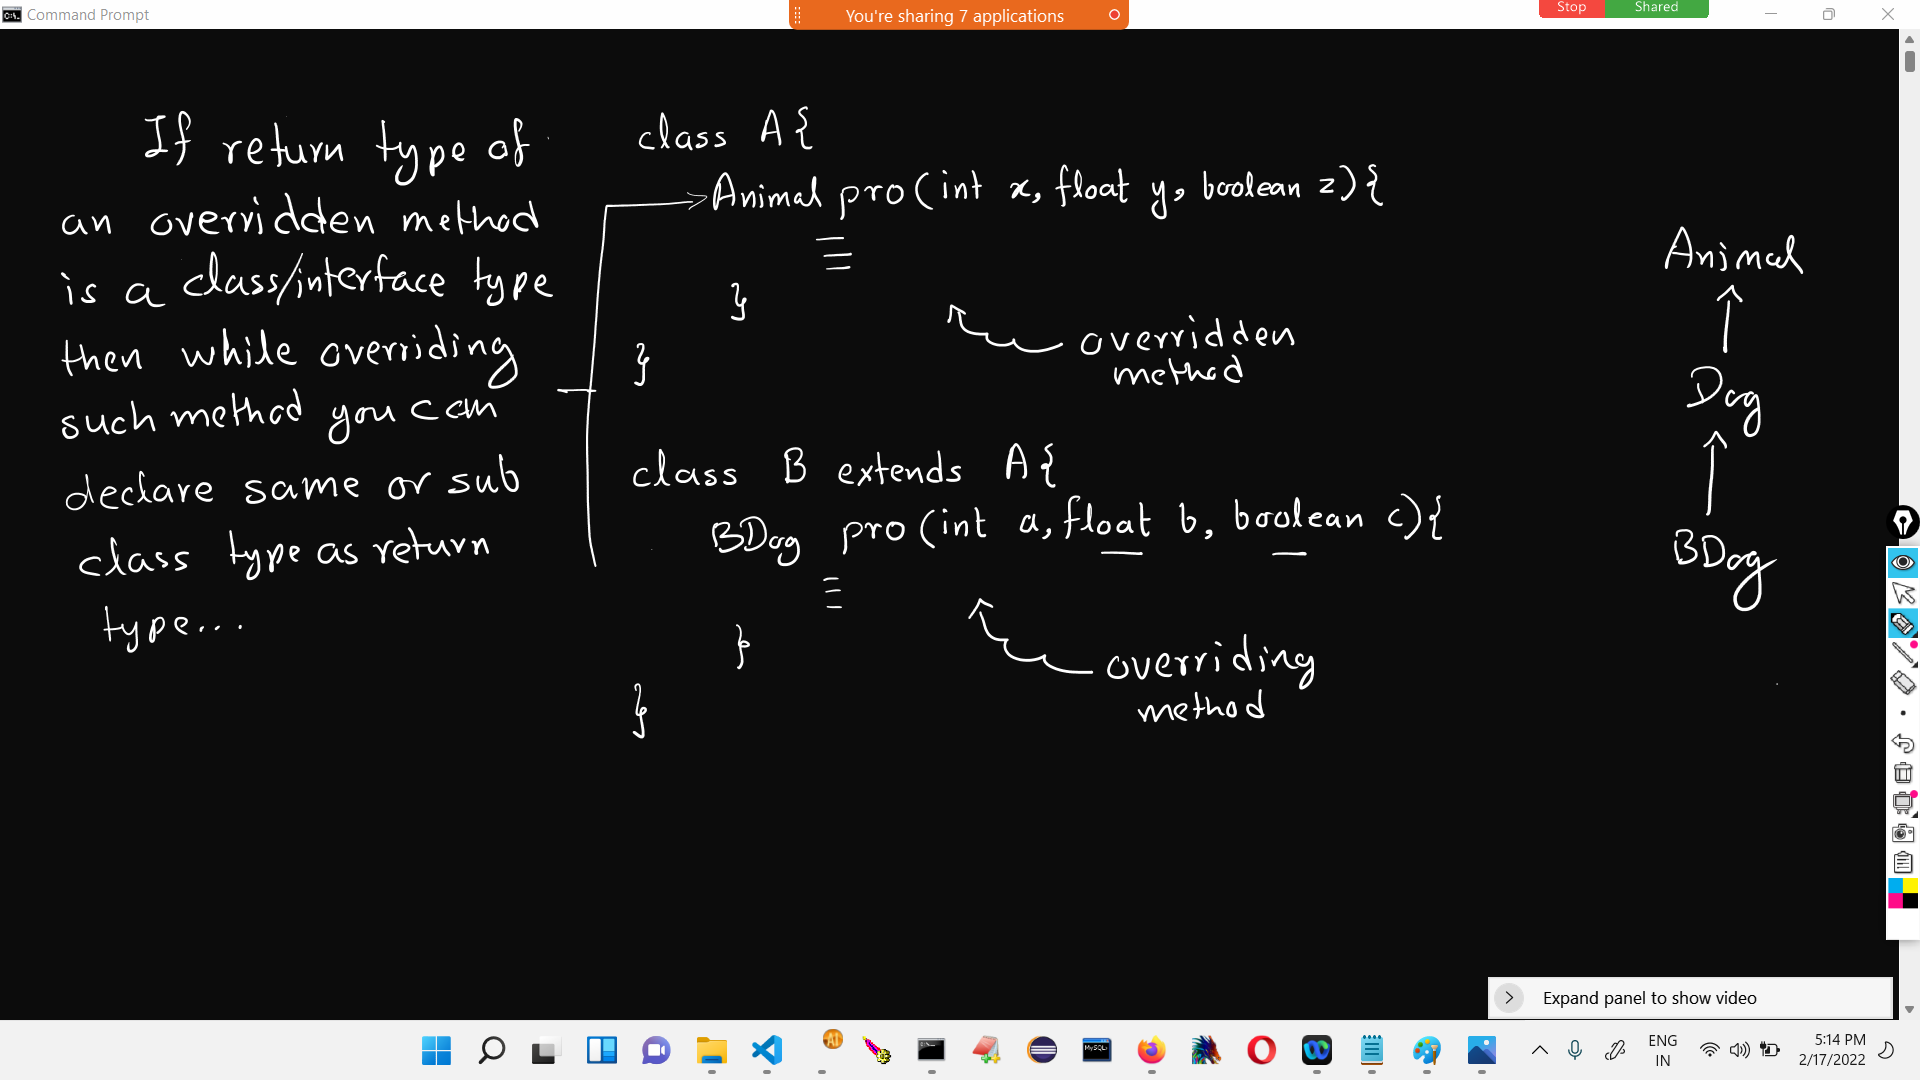 Command Prompt
You're sharing 7 applications
Stop
Shared
If return type of
an overridden method
is a class/interface type
then while overriding
such method you can
declare same or sub
class type as return
type...
class A{
Animal pro(int x, float y, boolean z){
}
}
overridden
method
class B extends A{
BDog pro(int a, float b, boolean c){
}
}
overriding
method
Animal
Dog
BDog
Expand panel to show video
ENG
IN
5:14 PM
2/17/2022